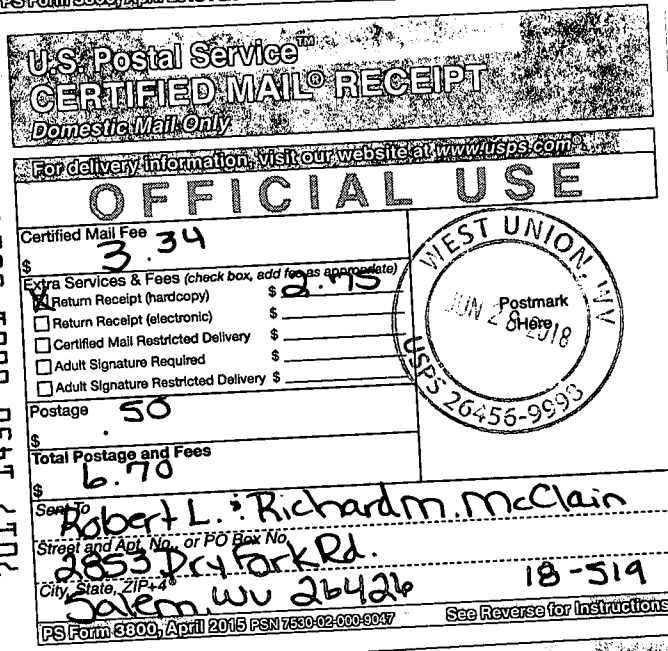 U.S. Postal Service™
CERTIFIED MAIL® RECEIPT
Domestic Mail Only
For delivery information, visit our website at www.usps.com®.
OFFICIAL USE
Certified Mail Fee
$ 3.34
Extra Services & Fees (check box, add fee as appropriate)
X Return Receipt (hardcopy) $ 2.75
Return Receipt (electronic) $
Certified Mail Restricted Delivery $
Adult Signature Required $
Adult Signature Restricted Delivery $
Postage
$ .50
Total Postage and Fees
$ 6.70
WEST UNION, WV
Postmark
Here
JUN 28 2018
USPS 26456-9998
Sent To
Robert L. & Richard M. McClain
Street and Apt. No., or PO Box No.
2853 Dry Fork Rd.
City, State, ZIP+4®
Salem, WV 26426
18-519
PS Form 3800, April 2015 PSN 7530-02-000-9047
See Reverse for Instructions